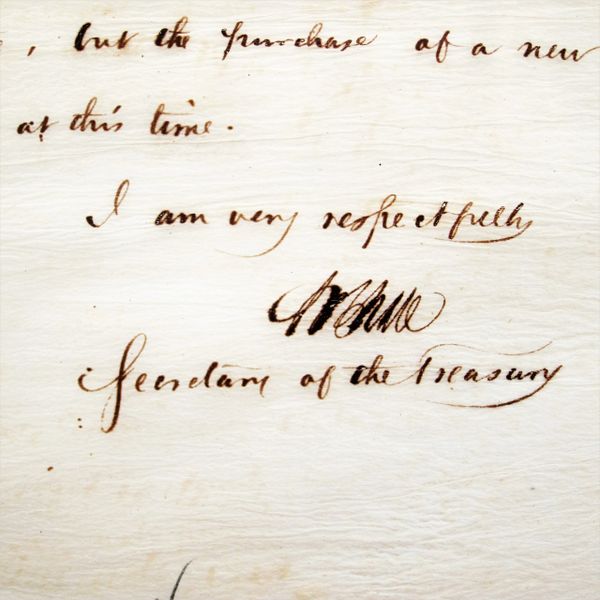 , but the purchase of a new
at this time.
I am very respectfully
Secretary of the Treasury